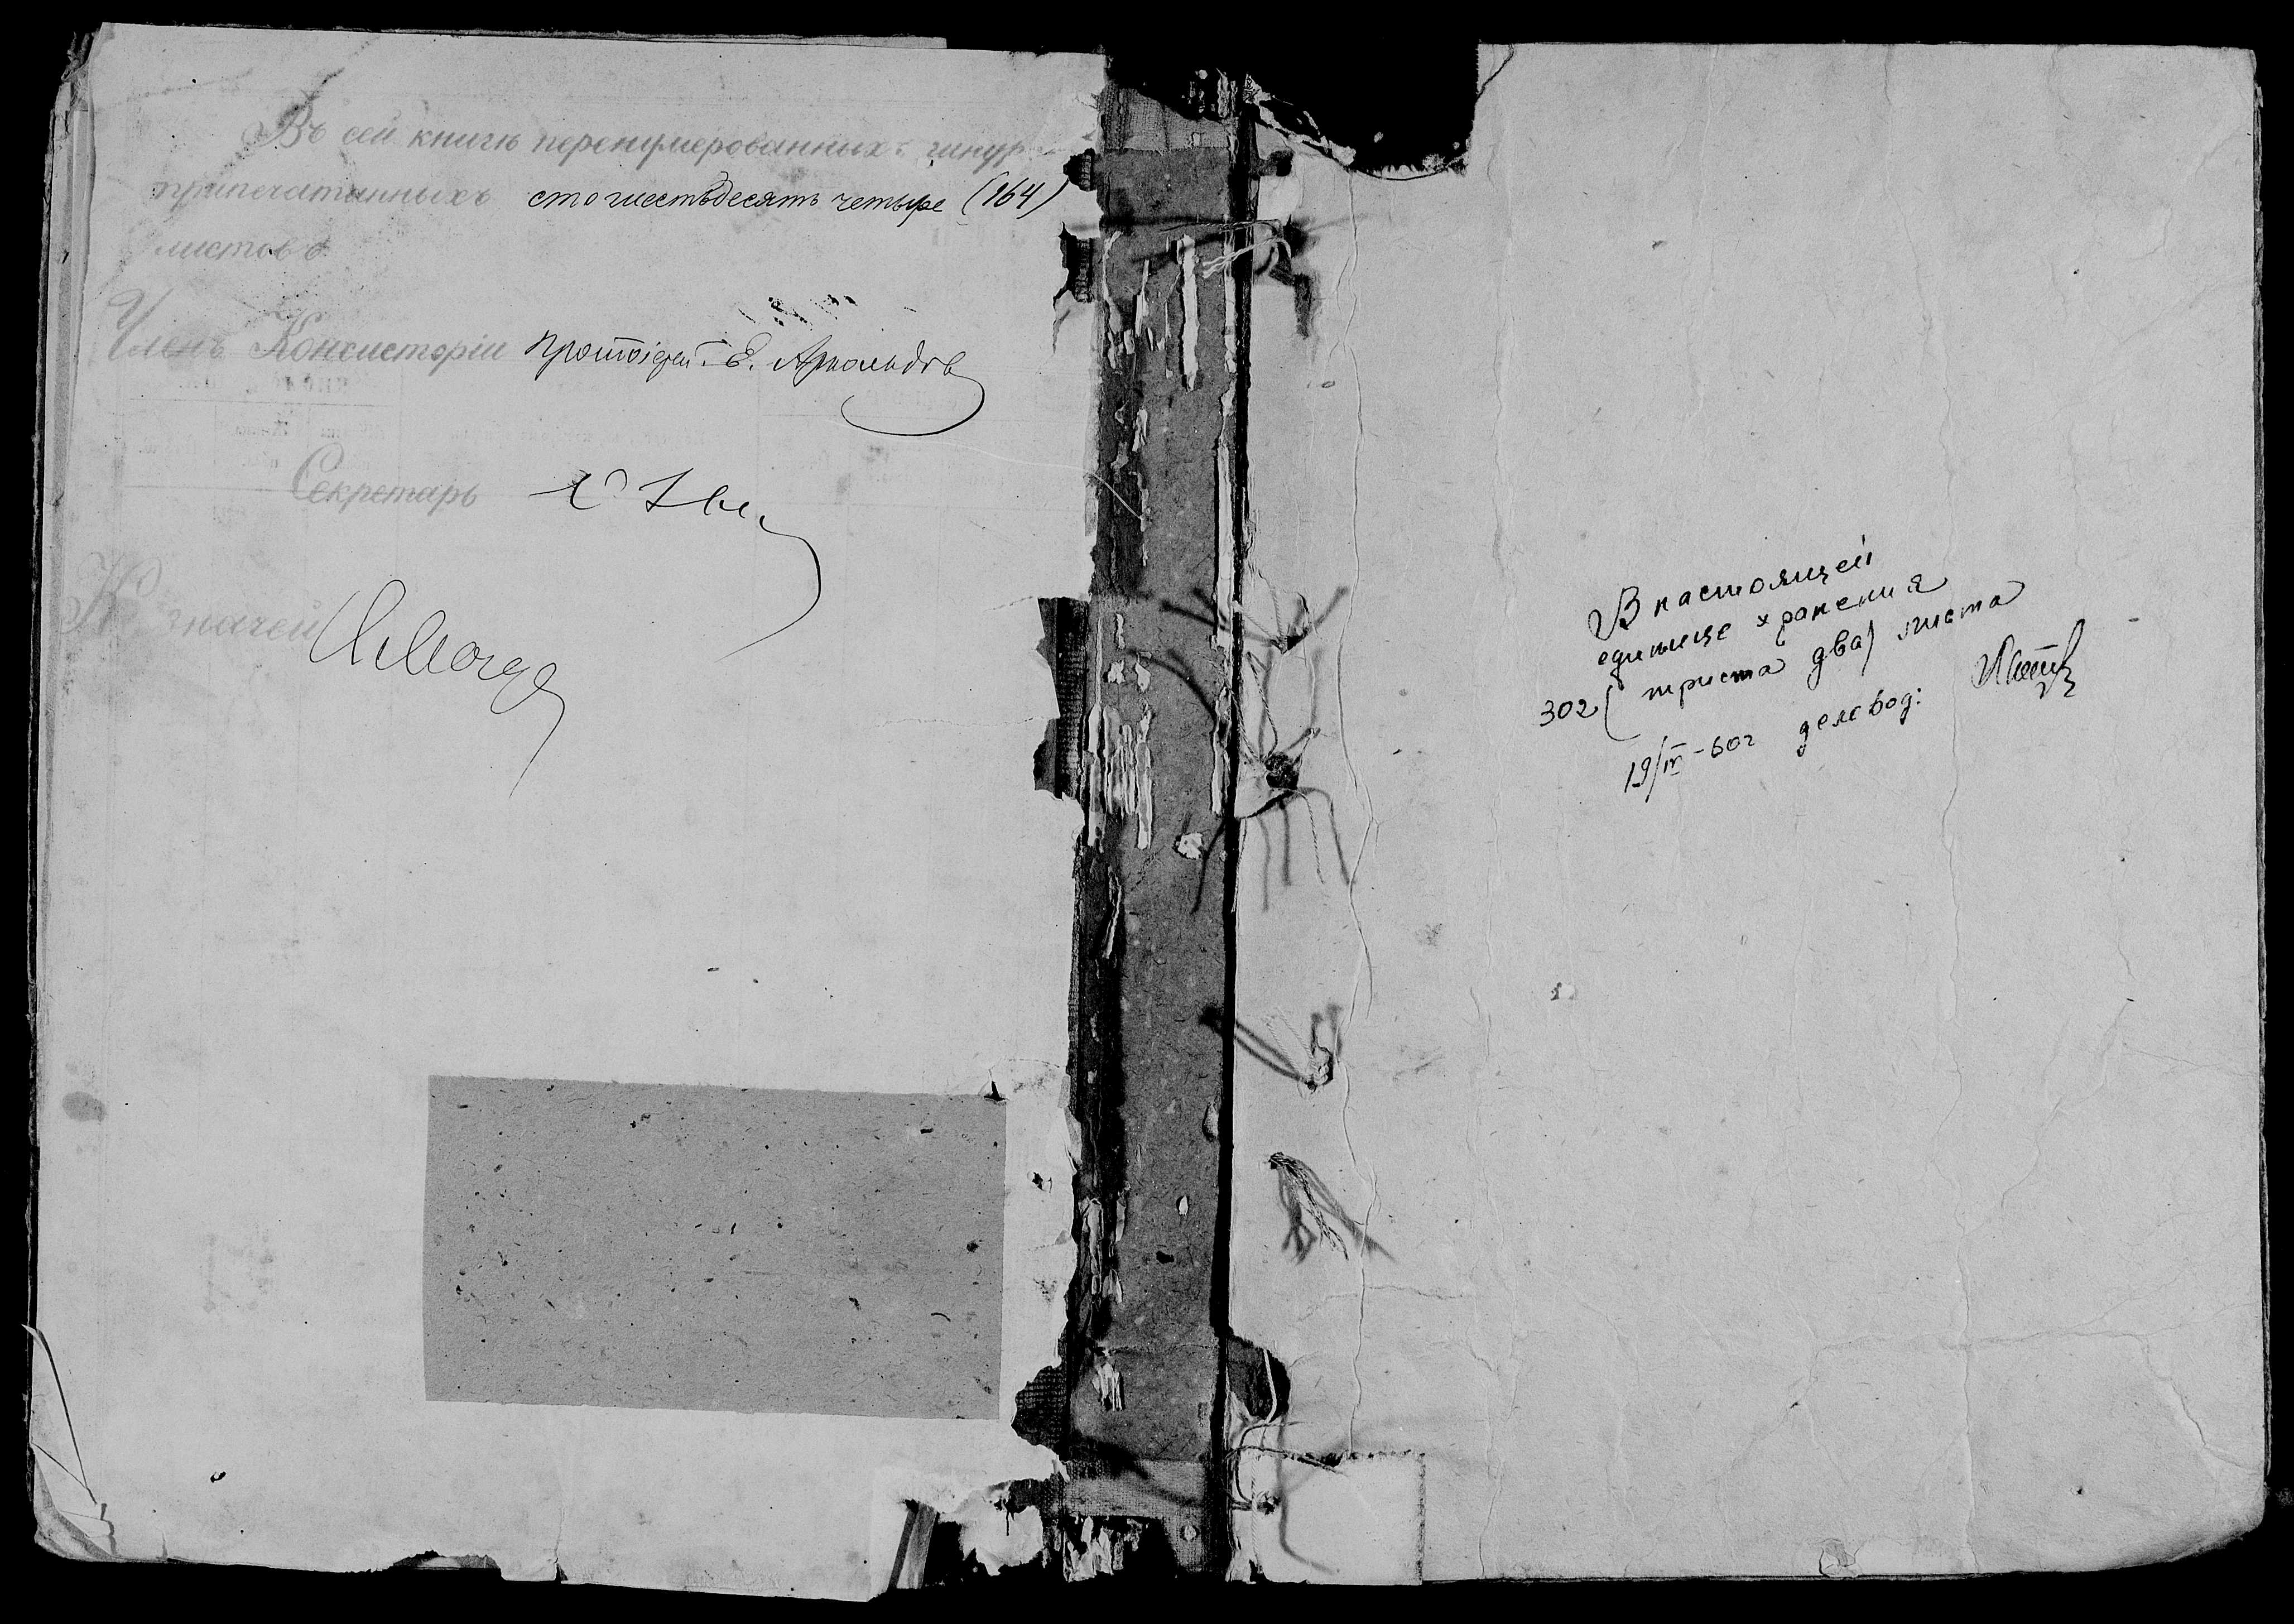 Въ сей книгѣ перенумерованныхъ шнур
припечатанныхъ сто шестьдесять четыре (164)
листовъ
Членъ Консисторіи Протоіерей Е.
Секретарь
Казначей
В настоящей
единице хранения
302 (триста два) листа
19/IV-60г деловод: